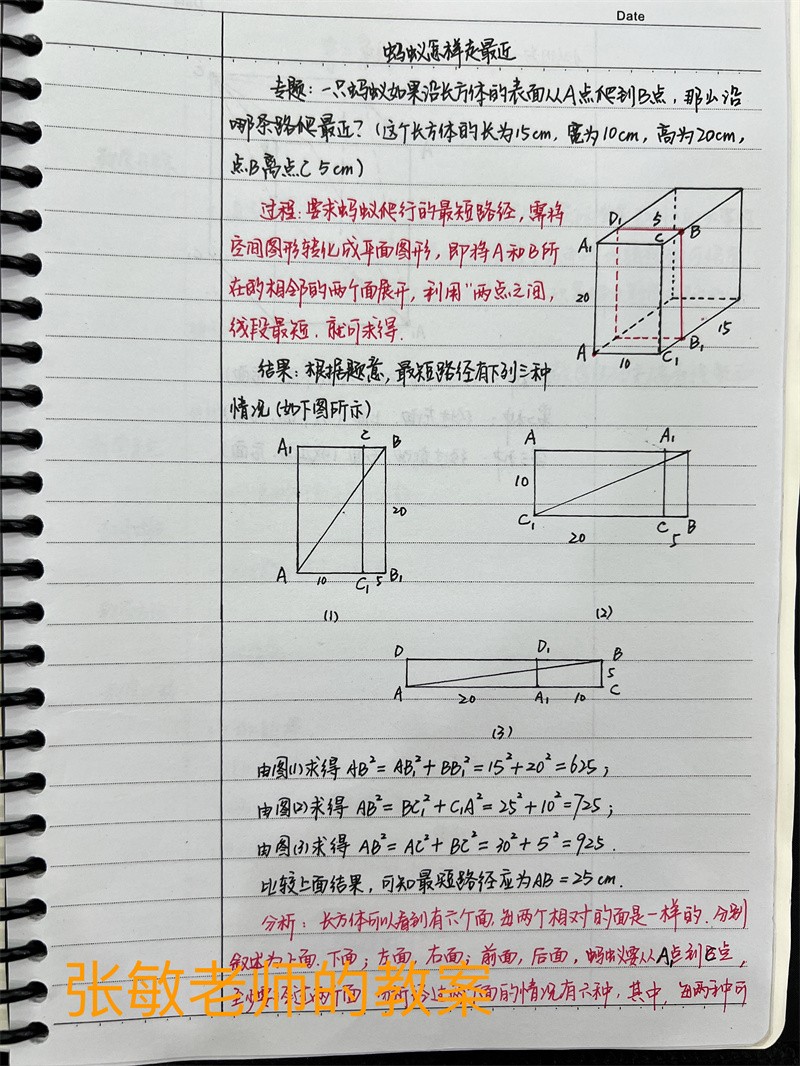 Date
蚂蚁怎样走最近
专题：一只蚂蚁如果沿长方体的表面从A点爬到B点，那么沿
哪条路爬最近？（这个长方体的长为15cm，宽为10cm，高为20cm，
点B离点C 5cm）
过程：要求蚂蚁爬行的最短路径，需将
空间图形转化成平面图形，即将A和B所
在的相邻的两个面展开，利用“两点之间，
线段最短．就可求得．
结果：根据题意，最短路径有下列三种
情况（如下图所示）
D₁ 5 B
A₁ C
20
15
A 10 C₁ B₁
A₁ C B
20
A 10 C₁ 5 B₁
(1)
A A₁
10
C₁ C B
20 5
(2)
D D₁ B
5
A 20 A₁ 10 C
(3)
由图(1)求得 AB²=AB₁²+BB₁²=15²+20²=625；
由图(2)求得 AB²=BC₁²+C₁A²=25²+10²=725；
由图(3)求得 AB²=AC²+BC²=30²+5²=925．
比较上面结果，可知最短路径应为AB=25cm．
分析：长方体可以看到有六个面，每两个相对的面是一样的．分别
叙述为上面、下面；左面，右面；前面，后面，蚂蚁要从A点到B点，
两个面 的情况有六种，其中，每两种可
张敏老师的教案